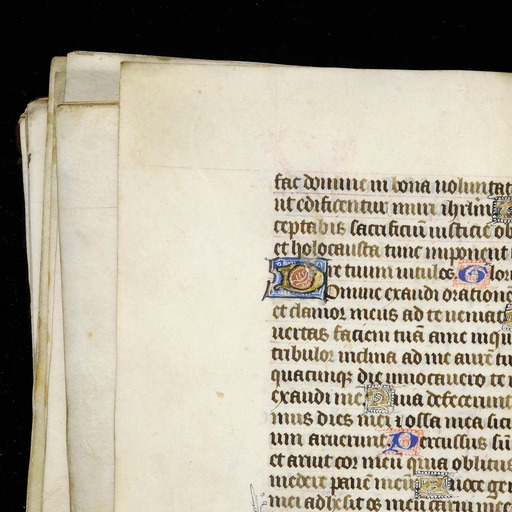 fac domine in bona uoluntat
ut edificentur muri ihrlm
ceptabis sacrificiū iusticie ob
et holocausta tunc imponent
re tuum uitulos Glor
Domine exaudi oratione
et clamor meus ad te ueniat
uertas faciem tuā a me in qu
tribulor inclina ad me aurē tu
quacunqꝫ die inuocauero te
exaudi me Quia defecerunt
mus dies mei ⁊ ossa mea sic
um aruerunt Percussus sū
et aruit cor meū quia oblitus
medere panē meū A uoce ge
mei adhesit os meū carni mee